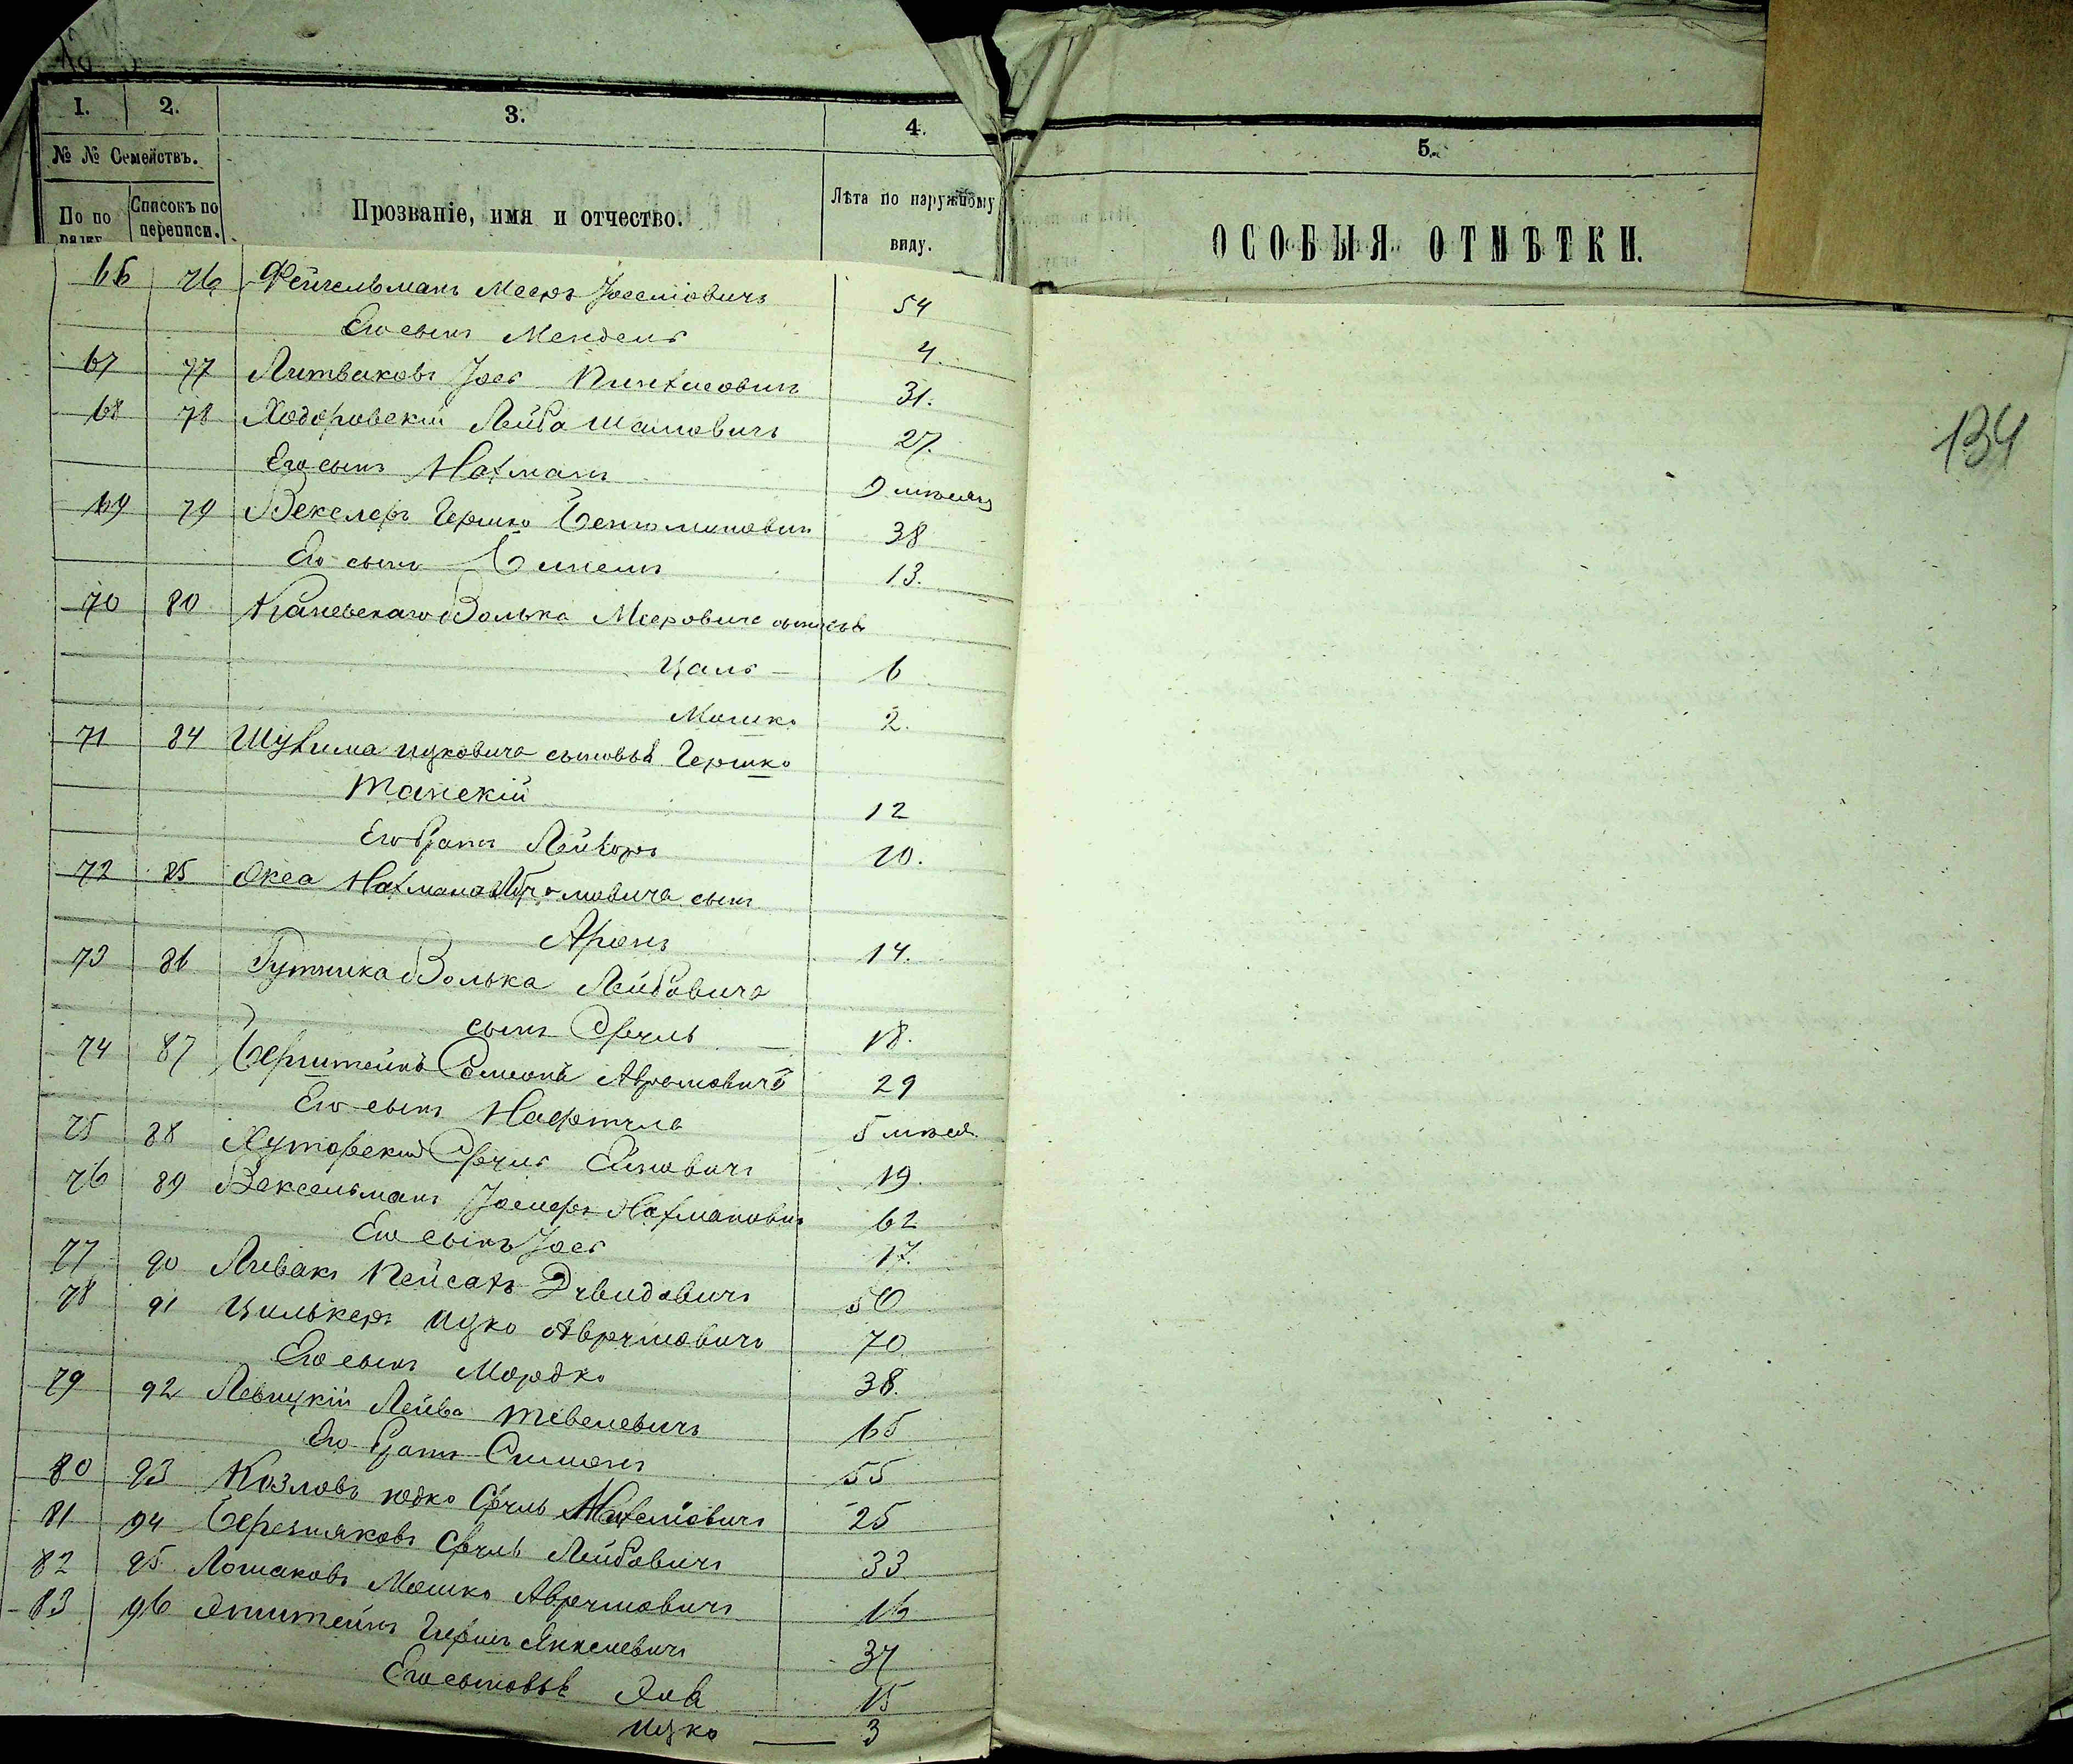 1. 2. 3. 4. 5.
№ № Семействъ.
По по рядку Списокъ по переписи. Прозваніе, имя и отчество. Лѣта по наружному виду. ОСОБЫЯ ОТМѢТКИ.
134
66 76 Фейгельманъ Мееръ 54
Его сынъ Мендель 4.
67 77 Литваковъ Іось Пинхасовичъ 31.
68 78 Ходоровскій Лейба 27.
Его сынъ Нахманъ 9 мѣсяц
69 79 Векслеръ Гершко Беньоминович 38
Его сынъ 13.
70 80 Каневскаго Волька Мееровича сыновья
Цаль — 6
Мошко 2.
71 84 Шухима Ицковича сыновья Гершко
Танскій 12
Его братъ Лейзоръ 10.
72 85 Нахмана сынъ
Аронъ 14.
73 86 Гутника Волька Лейбовича
сынъ Сруль — 18.
74 87 Бернштейнъ Авромовичъ 29
Его сынъ Нафтула 5 мѣся.
75 88 Хуторскій Сруль 19.
76 89 Вексельманъ Нахмановичъ 62
Его сынъ Іось 17.
77 90 Ливакъ Пейсахъ Дувидовичъ 50
78 91 Цилькеръ Ицко Аврумовичъ 70
Его сынъ Мордко 38.
79 92 Левицкій Лейба Тевелевичъ 65
Его братъ Симонъ 55
80 93 Козловъ Юдко Сруль 25
81 94 Березняковъ Сруль Лейбовичъ 33
82 95 Лошаковъ Мошко Аврумовичъ 16
83 96 Эпштейнъ Гершъ Янкелевичъ 37
Его сыновья 15
Ицко — 3